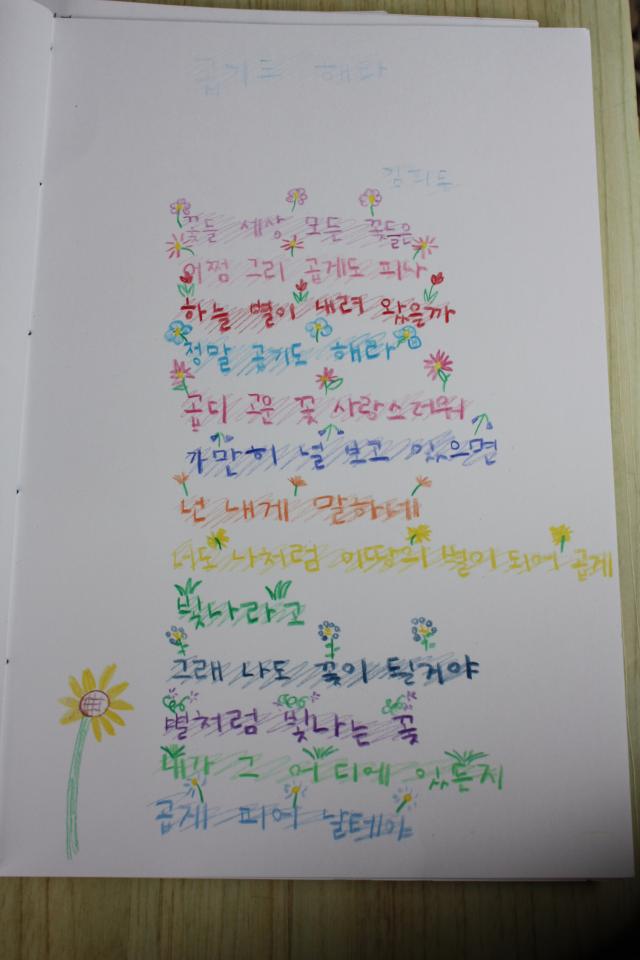 곱기도 해라
꽃들 세상 모든 꽃들은
어쩜 그리 곱게도 피나
하늘 별이 내려 왔을까
정말 곱기도 해라
곱디 고운 꽃 사랑스러워
가만히 널 보고 있으면
넌 내게 말하네
너도 나처럼 이땅의 별이 되어 곱게
빛나라고
그래 나도 꽃이 될거야
별처럼 빛나는 꽃
내가 그 어디에 있든지
곱게 피어 날테야